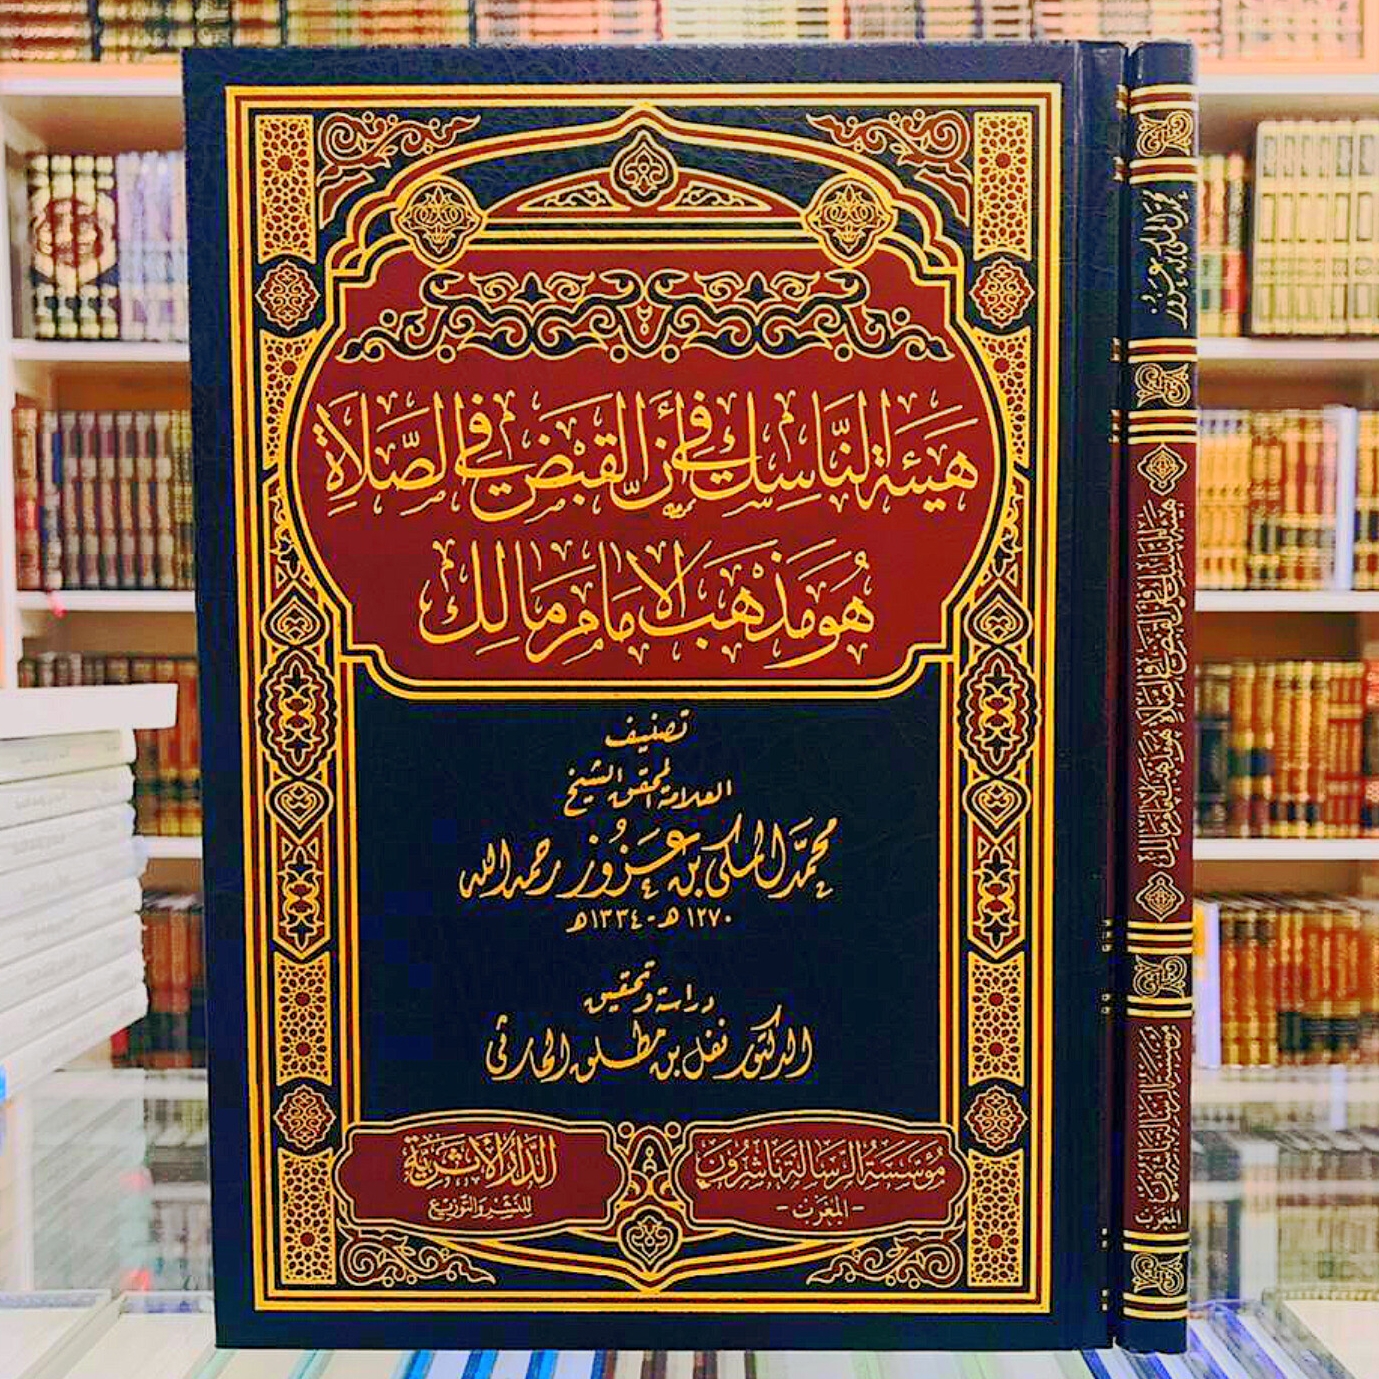 هَيْئَةُ النَّاسِكِ فِي أَنَّ القَبْضَ فِي الصَّلَاةِ
هُوَ مَذْهَبُ الإِمَامِ مَالِك
تصنيف
العلامة المحقق الشيخ
محمَّد المكي بن عَزُّوز رحمه الله
١٢٧٠ هـ - ١٣٣٤هـ
دراسة وتحقيق
الدكتور نفل بن مطلق الحارثي
مُؤَسَّسَةُ الرِّسَالَةِ نَاشِرُون
- المغرب -
الدَّارُ الأَثَرِيَّة
لِلنَّشْرِ وَالتَّوْزِيعِ
محمد المكي بن عزوز
هيئة الناسك في أن القبض في الصلاة هو مذهب الإمام مالك
مؤسسة الرسالة ناشرون
المغرب